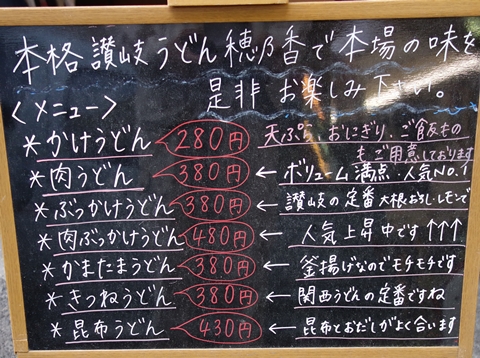 本格讃岐うどん穂乃香で本場の味を
是非お楽しみ下さい。
<メニュー>
*かけうどん 280円 天ぷら、おにぎり、ご飯もの
もご用意しております
*肉うどん 380円 ← ボリューム満点・人気NO.1
*ぶっかけうどん 380円 ← 讃岐の定番 大根おろし・レモンで
*肉ぶっかけうどん 480円 ← 人気上昇中です↑↑↑
*かまたまうどん 380円 ← 釜揚げなのでモチモチです
*きつねうどん 380円 ← 関西うどんの定番ですね
*昆布うどん 430円 ← 昆布とおだしがよく合います